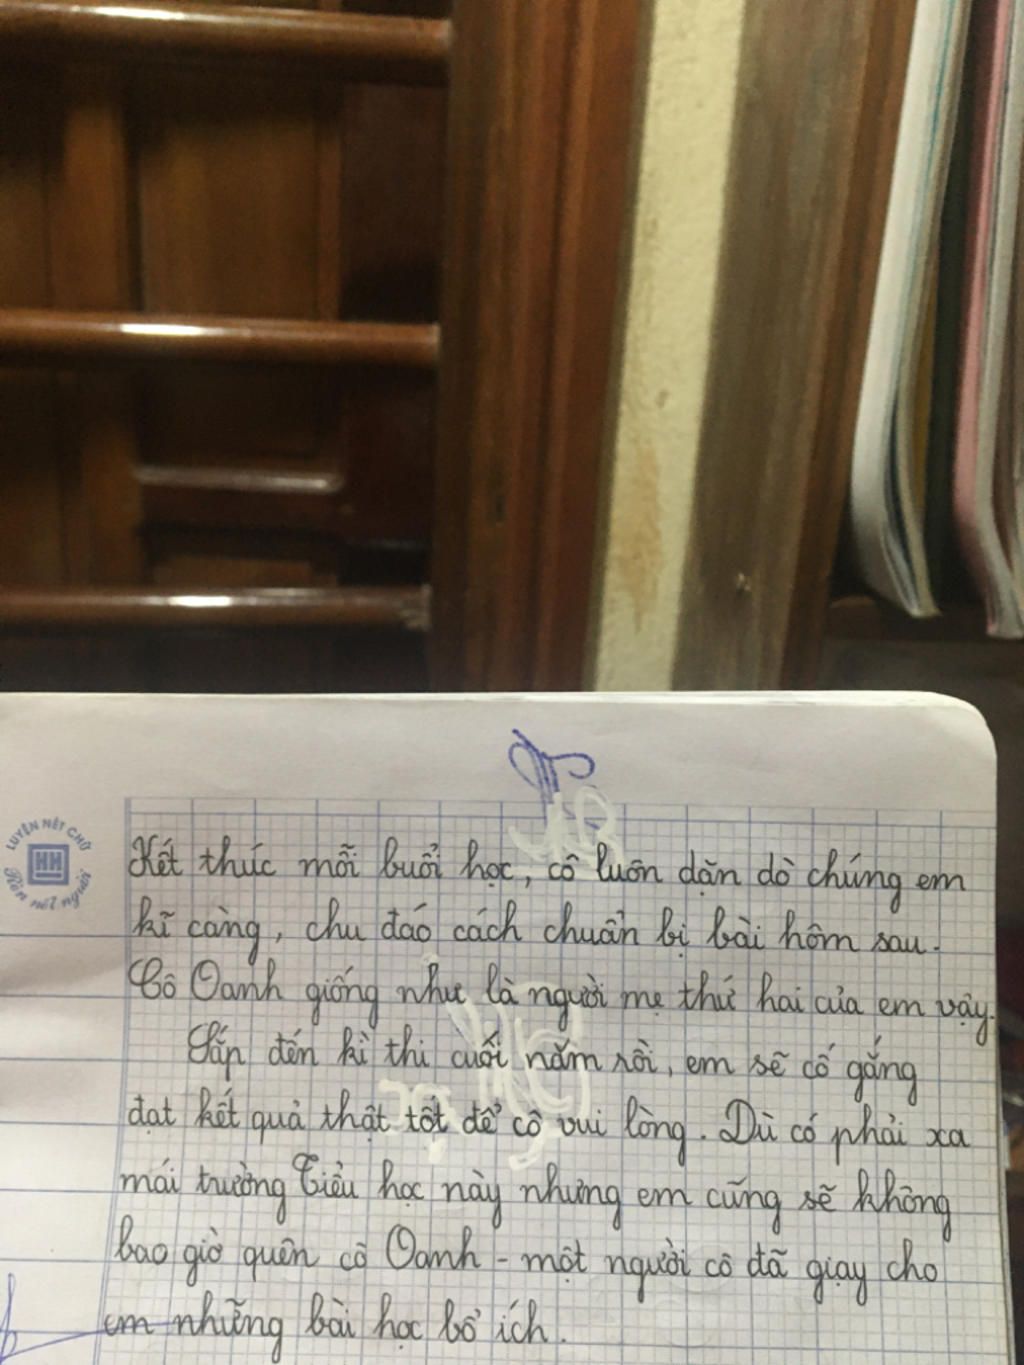 LUYỆN NÉT CHỮ
HH
Rèn nết người
Kết thúc mỗi buổi học, cô luôn dặn dò chúng em
kĩ càng, chu đáo cách chuẩn bị bài hôm sau.
Cô Oanh giống như là người mẹ thứ hai của em vậy.
Sắp đến kì thi cuối năm rồi, em sẽ cố gắng
đạt kết quả thật tốt để cô vui lòng. Dù có phải xa
mái trường Tiểu học này nhưng em cũng sẽ không
bao giờ quên cô Oanh - một người cô đã giạy cho
em những bài học bổ ích.